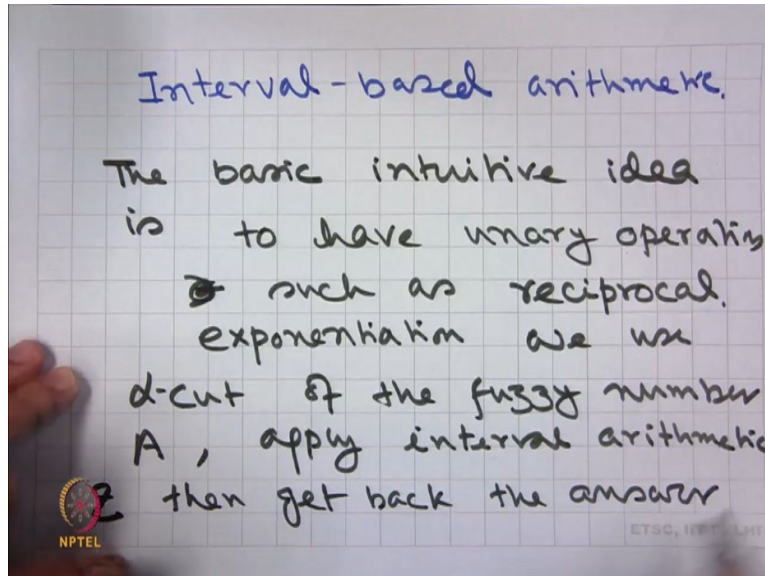 Interval-based arithmetic.
The basic intuitive idea
is to have unary operation
such as reciprocal.
exponentiation we use
α-cut of the fuzzy number
A, apply interval arithmetic
& then get back the answer
ETSC, IIT DELHI
NPTEL